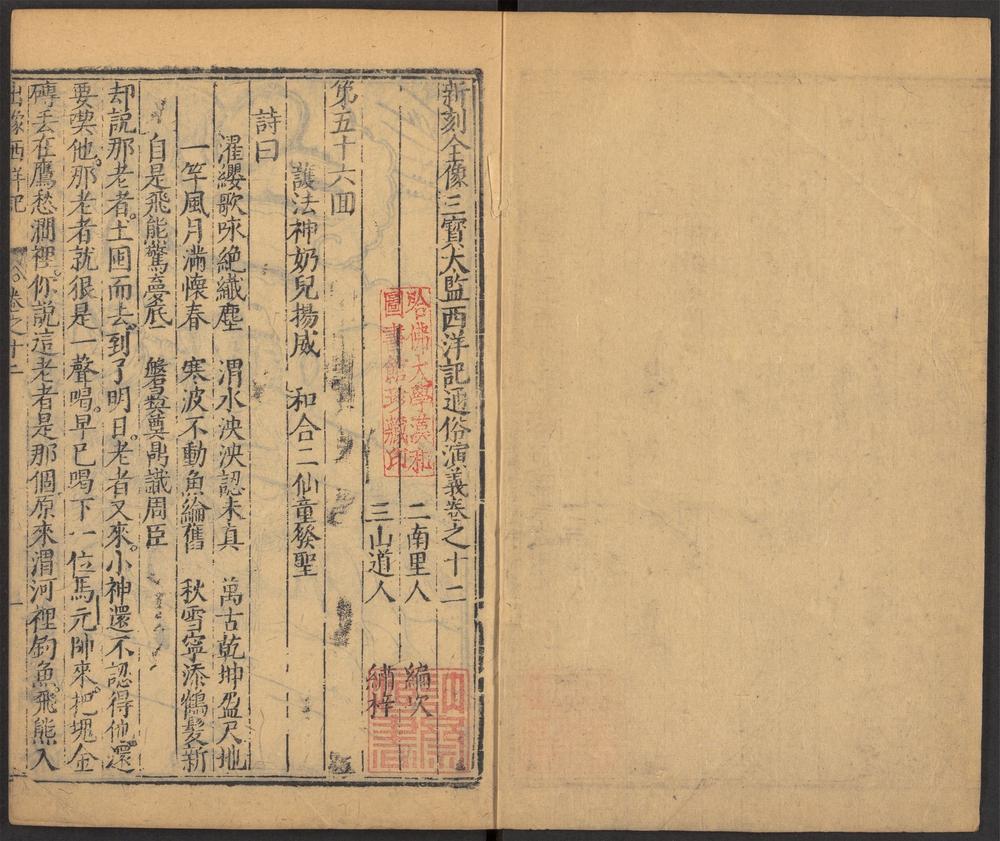 新刻全像三寳太監西洋記通俗演義卷之十二
二南里人 編次
三山道人 繡梓
哈佛大學漢和
圖書館珍藏印
第五十六回
護法神奶兒揚威 和合二仙童發聖
詩曰
濯纓歌咏絶纖塵 渭水泱泱認未真 萬古乾坤盈尺地
一竿風月滿懷春 寒波不動魚綸舊 秋雪寧添鶴髮新
自是飛能驚夢底 磻奠咼識周臣
却說那老者。土囤而去。到了明日。老者又來。小神還不認得他。還
要喫他。那老者就狠是一聲喝。早已喝下一位馬元帥來。把塊金
磚丢在鷹愁澗裡。你說這老者是那個。原來渭河裡釣魚。飛熊入
出像西洋記 卷之十二 一